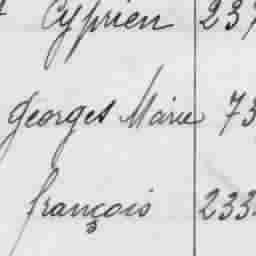 Cyprien 237
Georges Marie 73
françois 233